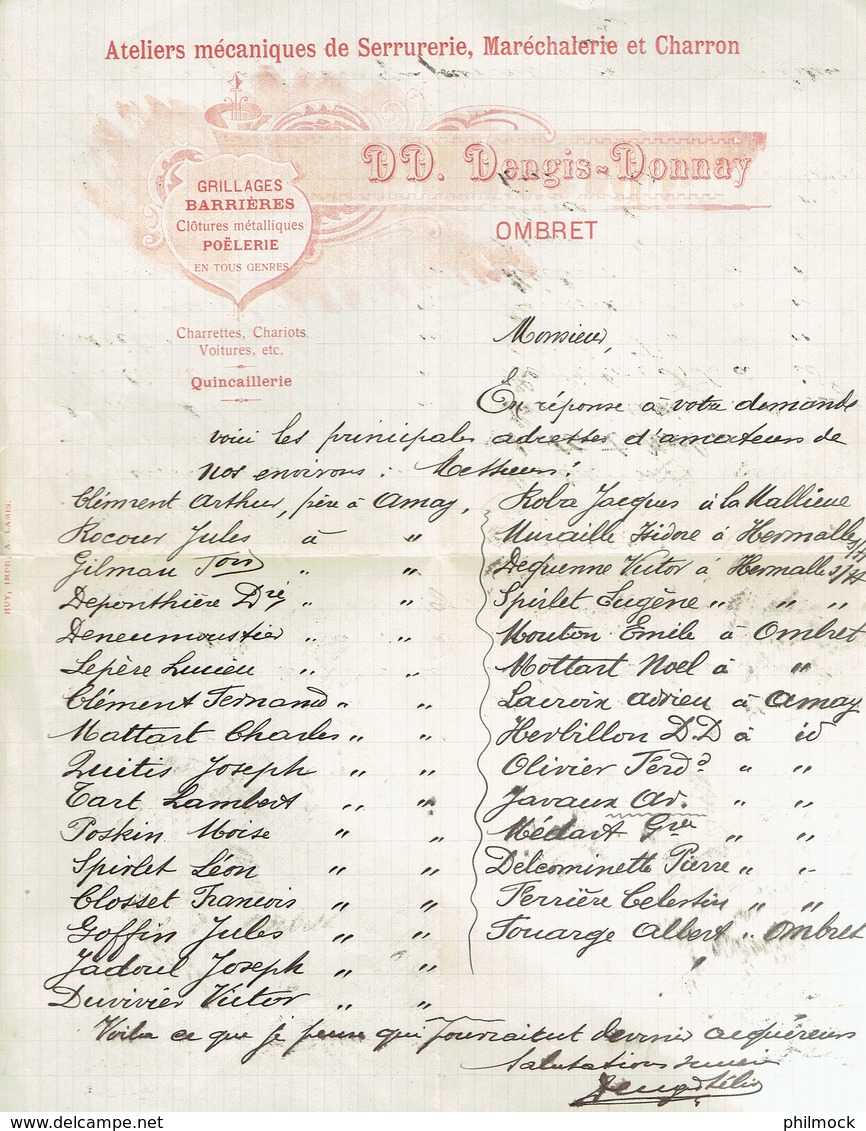 Ateliers mécaniques de Serrurerie, Maréchalerie et Charron
DD. Dengis-Donnay
OMBRET
GRILLAGES
BARRIÈRES
Clôtures métalliques
POËLERIE
EN TOUS GENRES
Charrettes, Chariots
Voitures, etc.
Quincaillerie
HUY, IMPR. A. LAMBS.
Monsieur,
En réponse à votre demande
voici les principales adresses d'amateurs de
nos environs : Messieurs :
Clément Arthur, père à Amay,
Rocour Jules à "
Gilman " "
Deponthière Dré " "
Deneumoustier " "
Lepère Lucien " "
Clément Fernand " "
Mattart Charles " "
Quitis Joseph " "
Tart Lambert " "
Poskin Moise " "
Spirlet Léon " "
Closset Francois " "
Goffin Jules " "
Jadoul Joseph " "
Duvivier Victor " "
Roba Jacques à la Mallieue
Muraille Isidore à Hermalle
Dequenne Victor à Hermalle
Spirlet Eugène " " "
Mouton Emile à Ombret
Mottart Noel à "
Lacroix Adrien à Amay
Herbillon DD à id
Olivier Ferd^d " "
Javaux Ad. " "
Médart " "
Delcominette Pierre " "
Ferrière Celestin " "
Fouarge Albert " Ombret
Voila ce que je pense qui pourraitut devenir acquéreurs
Salutations
delcampe.net
philmock